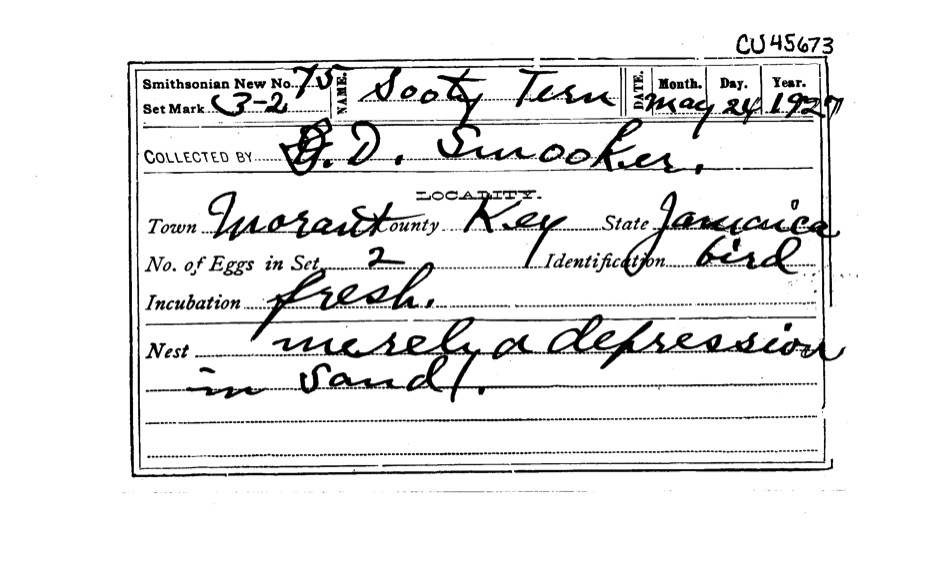 CU45673
Smithsonian New No. 75 NAME. Sooty Tern DATE. Month. Day. Year.
Set Mark 3-2 May 24 1927
COLLECTED BY G.D. Smooker.
LOCALITY.
Town Morant County Key State Jamaica
No. of Eggs in Set 2 Identification bird
Incubation fresh.
Nest merely a depression
in sand.